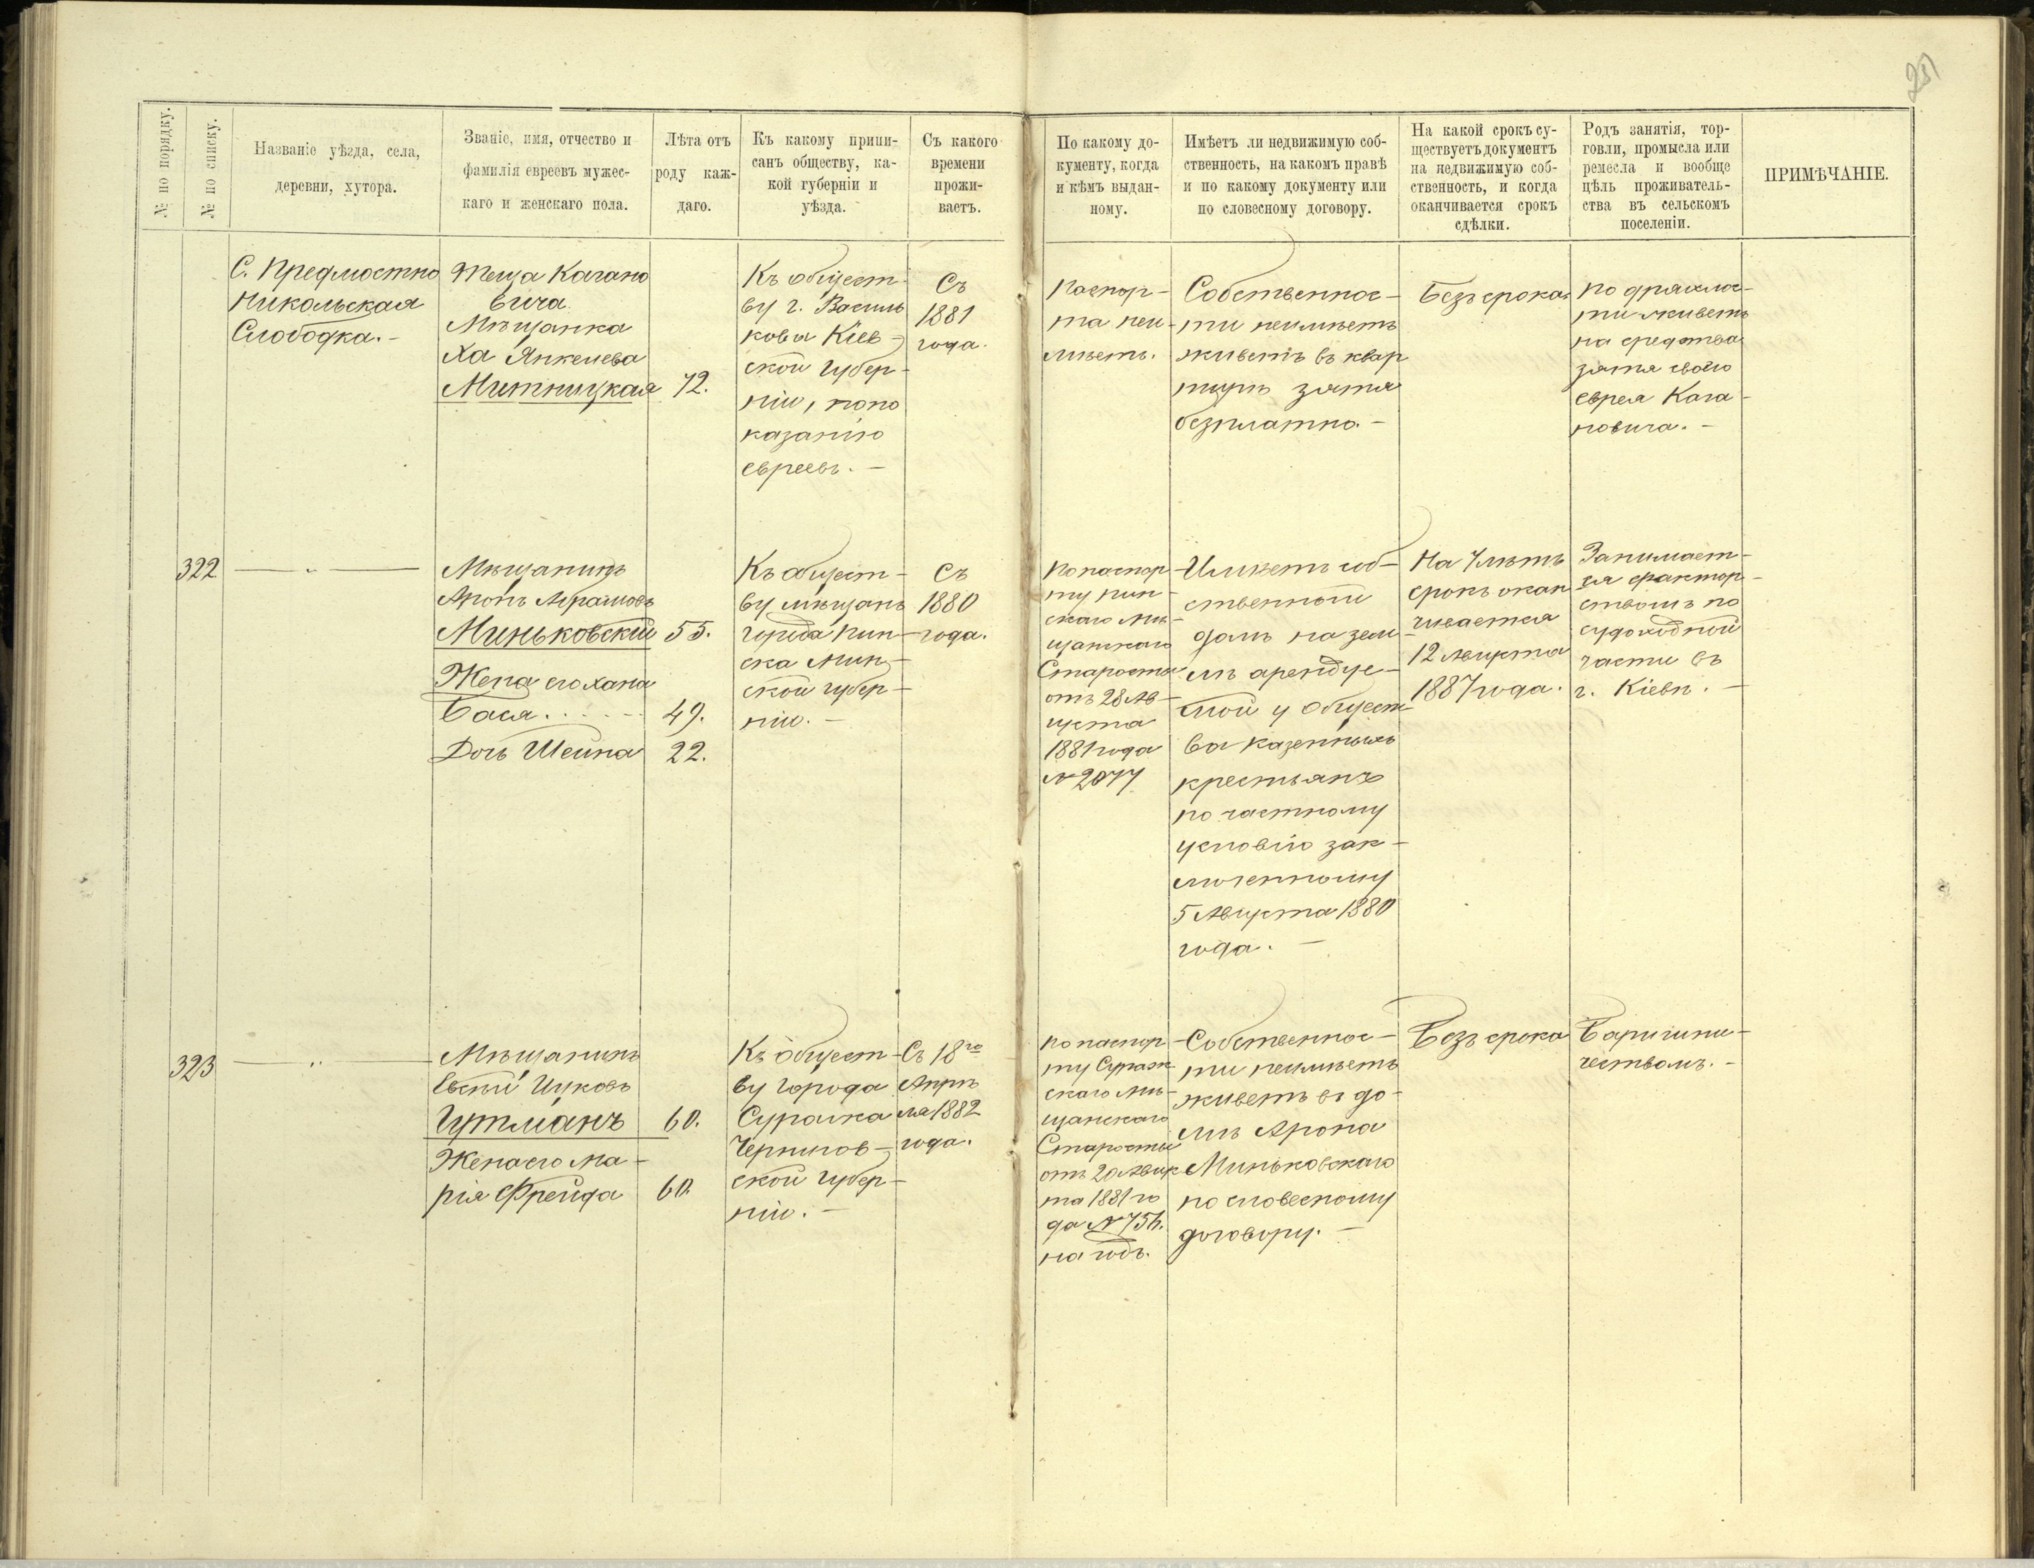 251
№ по порядку.
№ по списку.
Названіе уѣзда, села,
деревни, хутора.
Званіе, имя, отчество и
фамилія евреевъ мужес-
каго и женскаго пола.
Лѣта отъ
роду каж-
даго.
Къ какому припи-
санъ обществу, ка-
кой губерніи и
уѣзда.
Съ какого
времени
прожи-
ваетъ.
По какому до-
кументу, когда
и кѣмъ выдан-
ному.
Имѣетъ ли недвижимую соб-
ственность, на какомъ правѣ
и по какому документу или
по словесному договору.
На какой срокъ су-
ществуетъ документъ
на недвижимую соб-
ственность, и когда
оканчивается срокъ
сдѣлки.
Родъ занятія, тор-
говли, промысла или
ремесла и вообще
цѣль проживатель-
ства въ сельскомъ
поселеніи.
ПРИМѢЧАНІЕ.
С. Предмостно
Никольская
Слободка. -
Теща Кагано
вича
Мѣщанка
Ха Янкелева
Митницкая
72.
Къ общест-
ву г. Василь
кова Кіев-
ской Губер-
ніи, по по
казанію
евреевъ. -
Съ
1881
года.
Паспор-
та неи-
мѣетъ.
Собственнос-
ти неимѣетъ
живетъ въ квар
тирѣ зятя
безплатно. -
Безъ срока
По дряхлос-
ти живетъ
на средства
зятя своего
еврея Кага-
новича. -
322
— „ —
Мѣщанинъ
Аронъ Абрамовъ
Миньковскій
55.
Жена его Хана
Бася. . . . -
49.
Дочь Шейна
22.
Къ общест-
ву мѣщанъ
города Пин-
ска Мин-
ской губер-
ніи. -
Съ
1880
года.
По паспор
ту Пин-
скаго Мѣ-
щанскаго
Старосты
отъ 28 Ав-
густа
1881 года
№ 2077
Имѣетъ соб-
ственный
домъ на зем-
лѣ арендуе-
мой у общест-
ва казенныхъ
крестьянъ
по частному
условію зак-
люченному
5 Августа 1880
года. -
На 7 лѣтъ
срокъ окан
чивается
12 Августа
1887 года.
Занимает-
ся фактор-
ствомъ по
судоходной
части въ
г. Кіевѣ. -
323
— „ —
Мѣщанинъ
Евсѣй Ицковъ
Гутманъ
60.
Жена его Ма-
рія Фрейда
60.
Къ общест-
ву города
Суража
Чернигов-
ской Губер-
ніи. -
Съ 18го
Апрѣ
ля 1882
года.
По паспор
ту Сураж
скаго Мѣ-
щанскаго
Старосты
отъ 20 Авгус
та 1881 го
да № 756.
на годъ.
Собственнос-
ти неимѣетъ
живетъ въ до-
мѣ Арона
Миньковскаго
по словесному
договору. -
Безъ срока
Барышни-
чествомъ. -